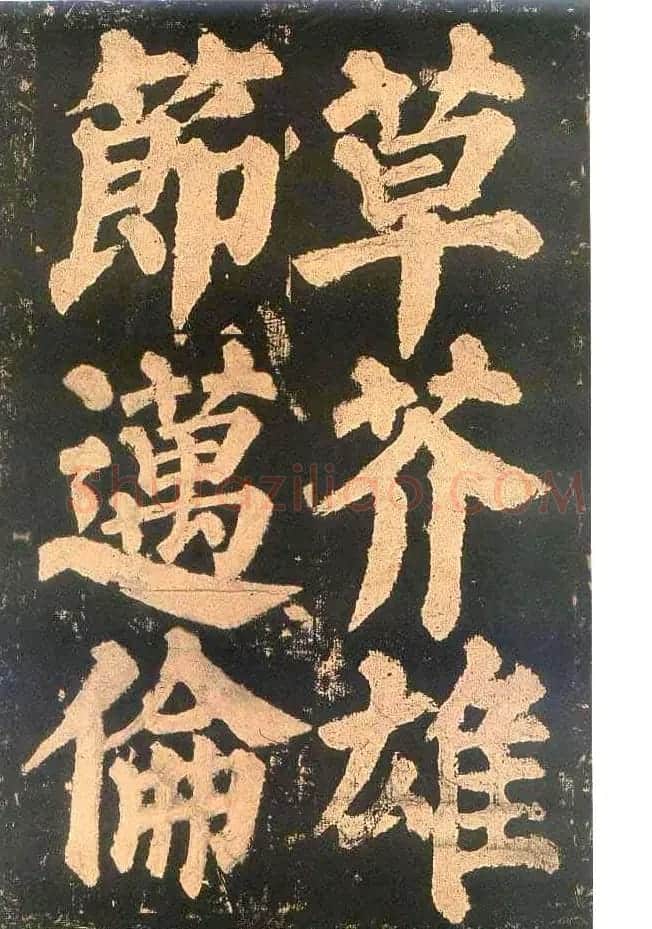 草芥雄
節邁倫
shufaziliao.COM